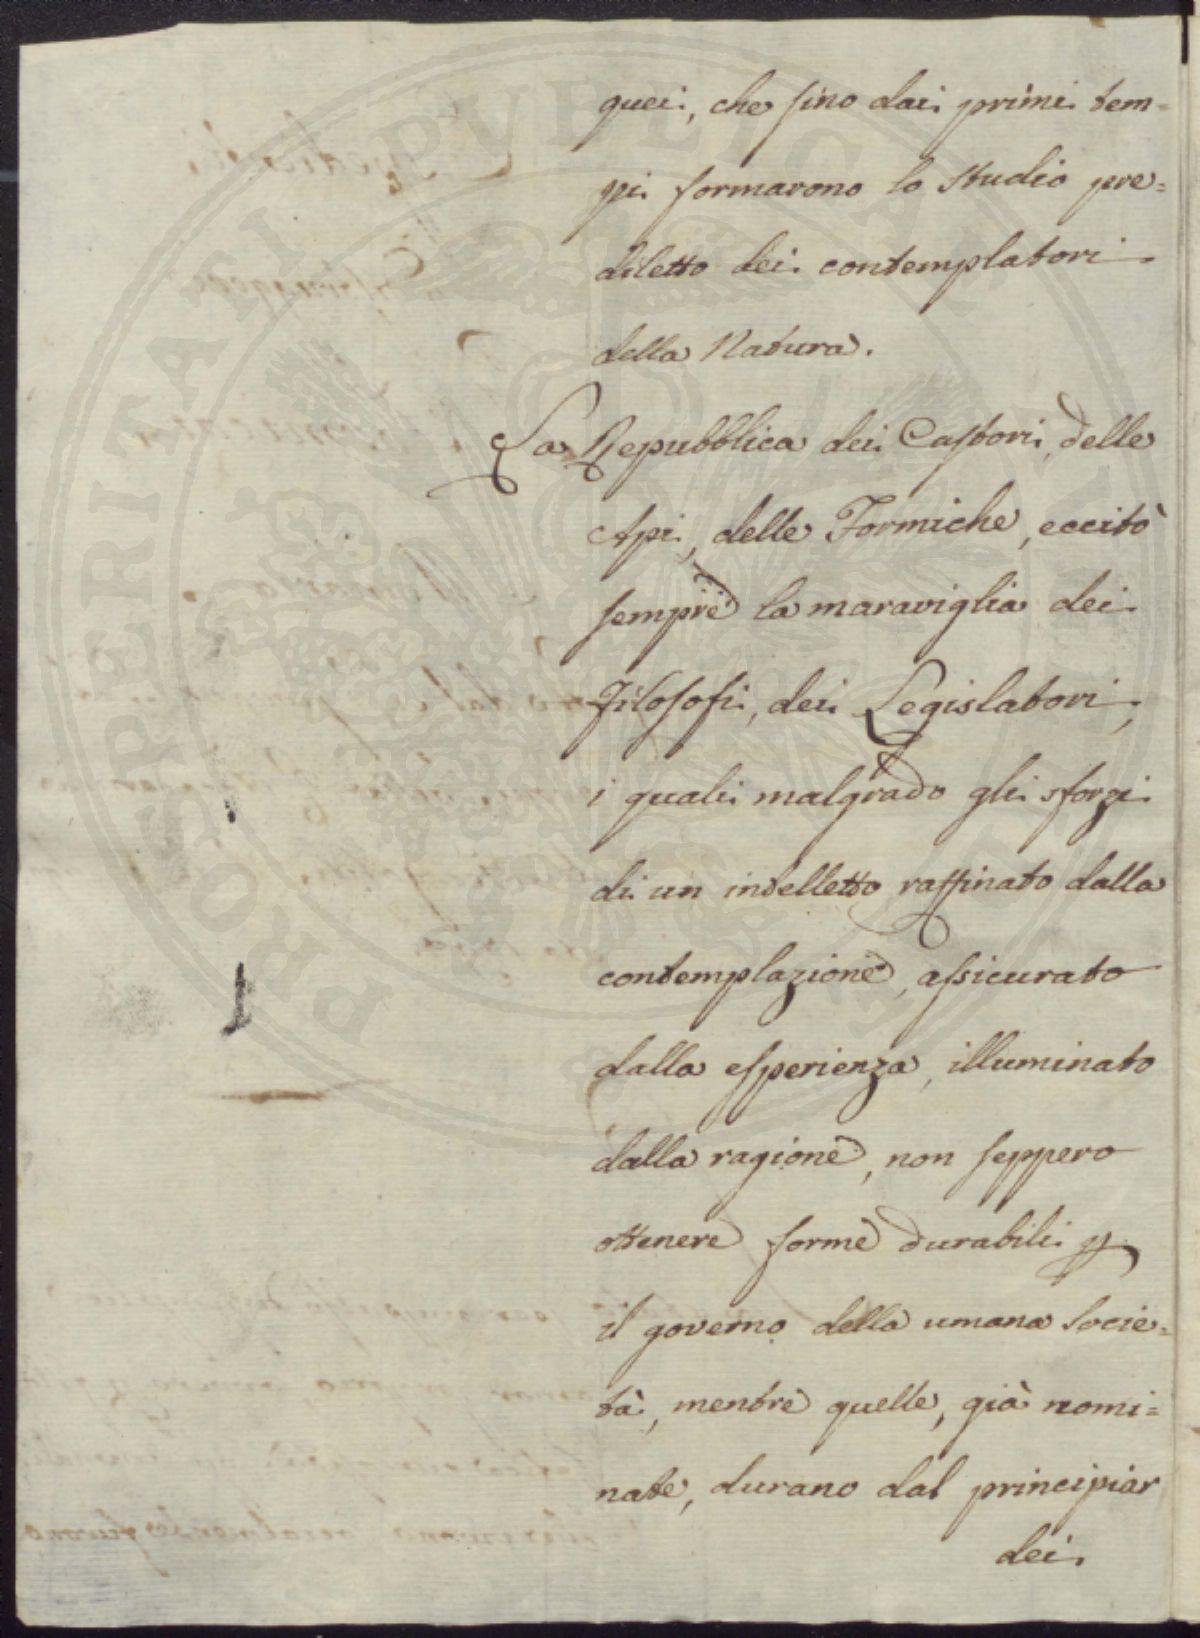 quei, che sino dai primi tem=
pi formarono lo studio pre=
diletto dei contemplatori
della Natura.
La Repubblica dei Castori, delle
Api, delle Formiche, eccitò
sempre la maraviglia dei
Filosofi, dei Legislatori,
i quali malgrado gli sforzi
di un intelletto raffinato dalla
contemplazione, assicurato
dalla esperienza, illuminato
dalla ragione, non seppero
ottenere forme durabili p
il governo della umana Socie=
tà, mentre quelle, già nomi=
nate, durano dal principiar
dei
PROSPERITATI PVBLICAE